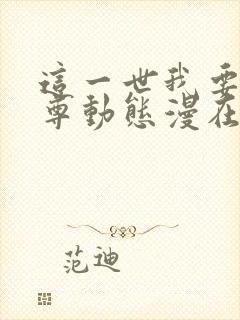 這一世我要
尊動態漫在
范迪